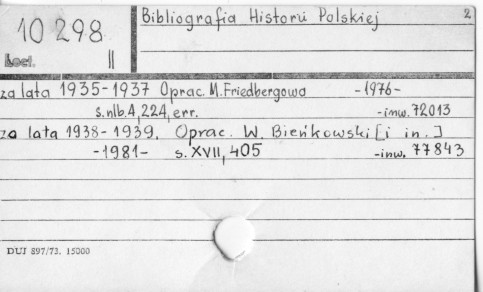 Bibliografia Historii Polskiej 2
10 298
II
za lata 1935-1937 Oprac. M. Friedbergowa -1976-
s. nlb. 4, 224, err. -inw. 72013
za lata 1938-1939. Oprac. W. Bieńkowski [i in.]
-1981- s. XVII, 405 -inw. 77843
DUJ 897/73. 15000